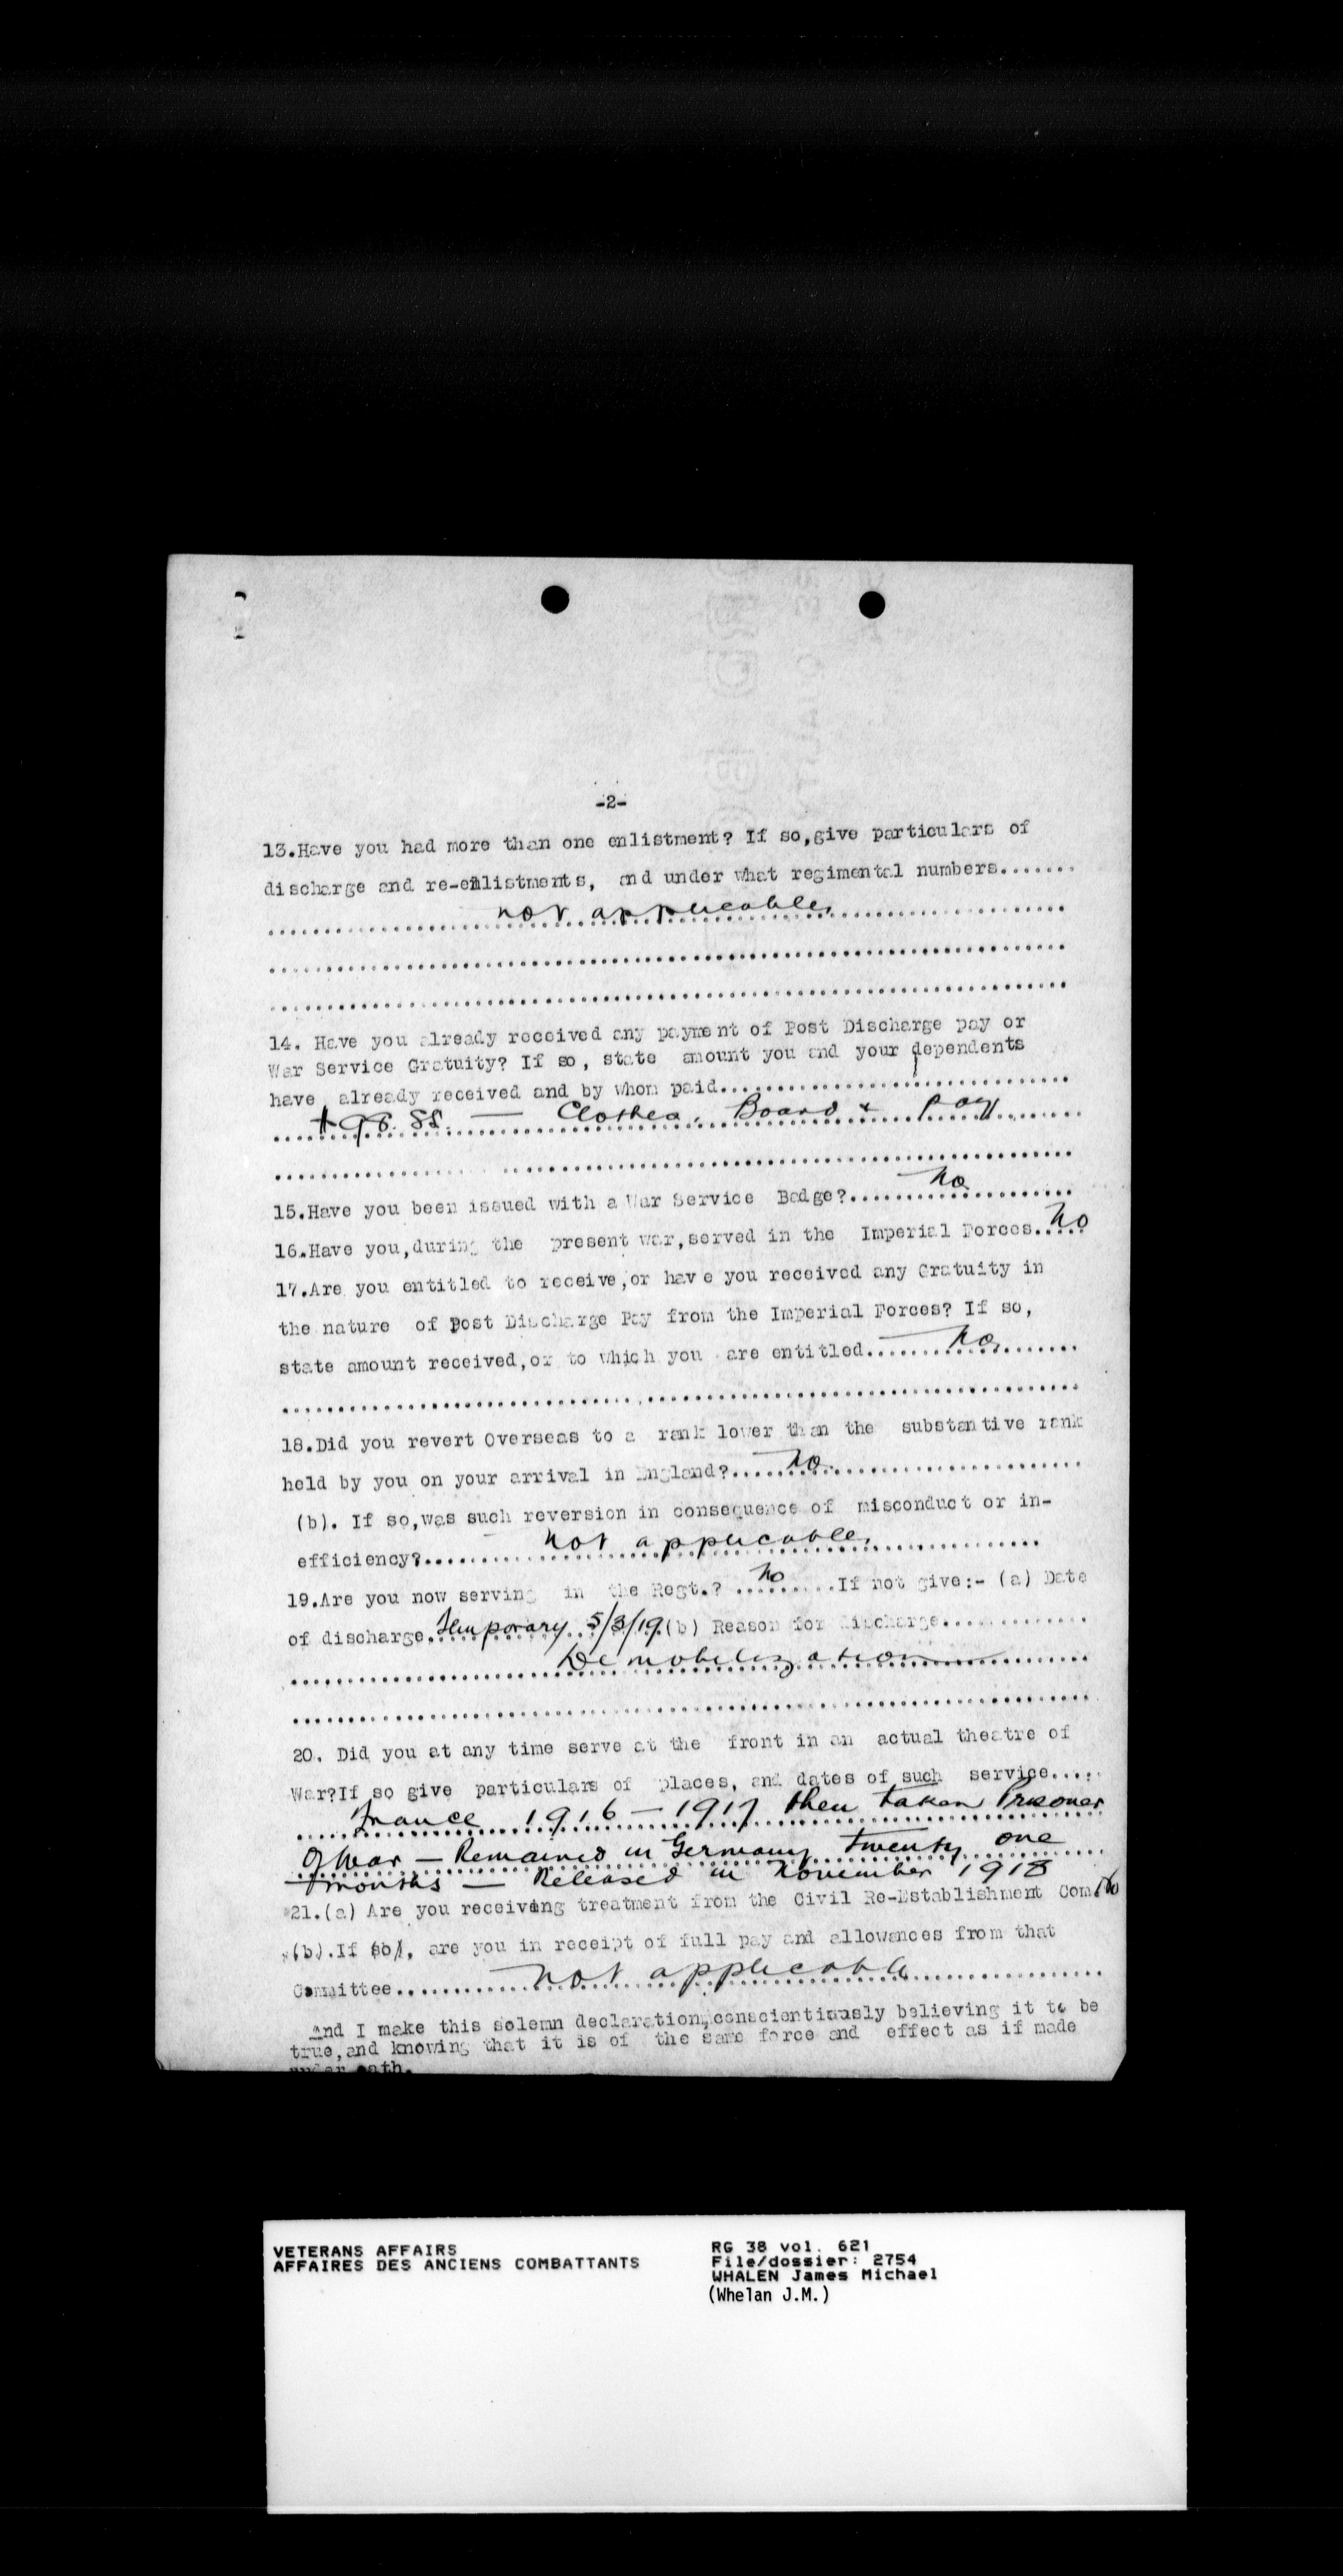 -2-
13.Have you had more than one enlistment? If so,give particulars of
discharge and re-enlistments, and under what regimental numbers.......
not applicable,
14. Have you already received any payment of Post Discharge pay or
War Service Gratuity? If so, state amount you and your dependents
have already received and by whom paid...............................
Clothes, Board & Pay
15.Have you been issued with a War Service Badge?.......no...........
16.Have you,during the present war,served in the Imperial Forces.....no
17.Are you entitled to receive,or have you received any Gratuity in
the nature of Post Discharge Pay from the Imperial Forces? If so,
state amount received,or to which you are entitled.......no.......
18.Did you revert Overseas to a rank lower than the substantive rank
held by you on your arrival in England?.....no.....................
(b). If so,was such reversion in consequence of misconduct or in-
efficiency?.......not applicable,..............
19.Are you now serving in the Regt.? ...no......If not give:- (a) Date
of discharge.Temporary 5/3/19.(b) Reason for discharge.............
Demobilization
20. Did you at any time serve at the front in an actual theatre of
War?If so give particulars of places, and dates of such service.....
France 1916 - 1917 then taken Prisoner
of War - Remained in Germany twenty one
months - Released in November 1918
21.(a) Are you receiving treatment from the Civil Re-Establishment Com. No
(b).If so, are you in receipt of full pay and allowances from that
Committee.......not applicable..............
And I make this solemn declaration,conscientiously believing it to be
true,and knowing that it is of the same force and effect as if made
under oath.
VETERANS AFFAIRS
AFFAIRES DES ANCIENS COMBATTANTS
RG 38 vol. 621
File/dossier: 2754
WHALEN James Michael
(Whelan J.M.)